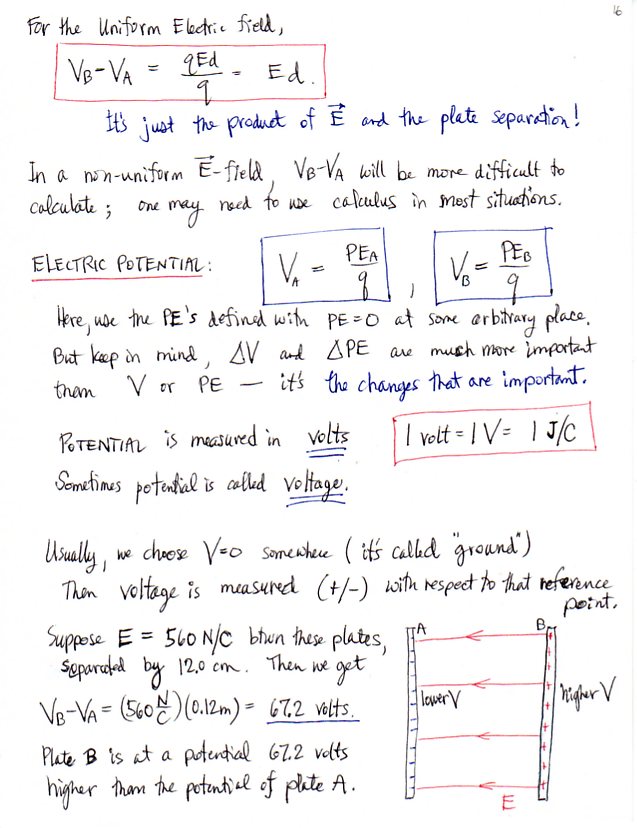 16
For the Uniform Electric field,
V_B − V_A = qEd/q = Ed.
It's just the product of E⃗ and the plate separation!
In a non-uniform E⃗-field, V_B−V_A will be more difficult to
calculate; one may need to use calculus in most situations.
ELECTRIC POTENTIAL: V_A = PE_A/q , V_B = PE_B/q
Here, use the PE's defined with PE=0 at some arbitrary place.
But keep in mind, ΔV and ΔPE are much more important
than V or PE — it's the changes that are important.
POTENTIAL is measured in volts
1 volt = 1 V = 1 J/C
Sometimes potential is called voltage.
Usually, we choose V=0 somewhere (it's called "ground")
Then voltage is measured (+/−) with respect to that reference
point.
Suppose E = 560 N/C btwn these plates,
separated by 12.0 cm. Then we get
V_B−V_A = (560 N/C)(0.12m) = 67.2 volts.
Plate B is at a potential 67.2 volts
higher than the potential of plate A.
A B
lower V higher V
E